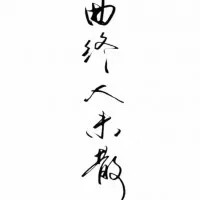 曲终人未散